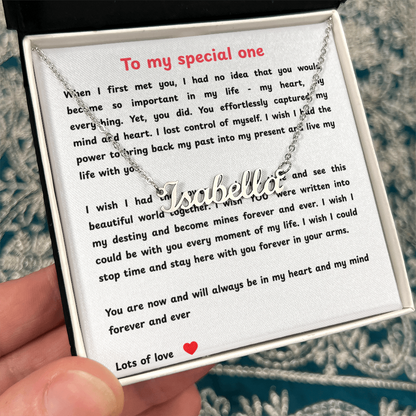 To my special one
When I first met you, I had no idea that you would
become so important in my life - my heart, my
everything. Yet, you did. You effortlessly captured my
mind and heart. I lost control of myself. I wish I had the
power to bring back my past into my present and live my
life with you
Isabella
I wish I had and see this
beautiful world together. I wish You were written into
my destiny and become mines forever and ever. I wish I
could be with you every moment of my life. I wish I could
stop time and stay here with you forever in your arms.
You are now and will always be in my heart and my mind
forever and ever
Lots of love